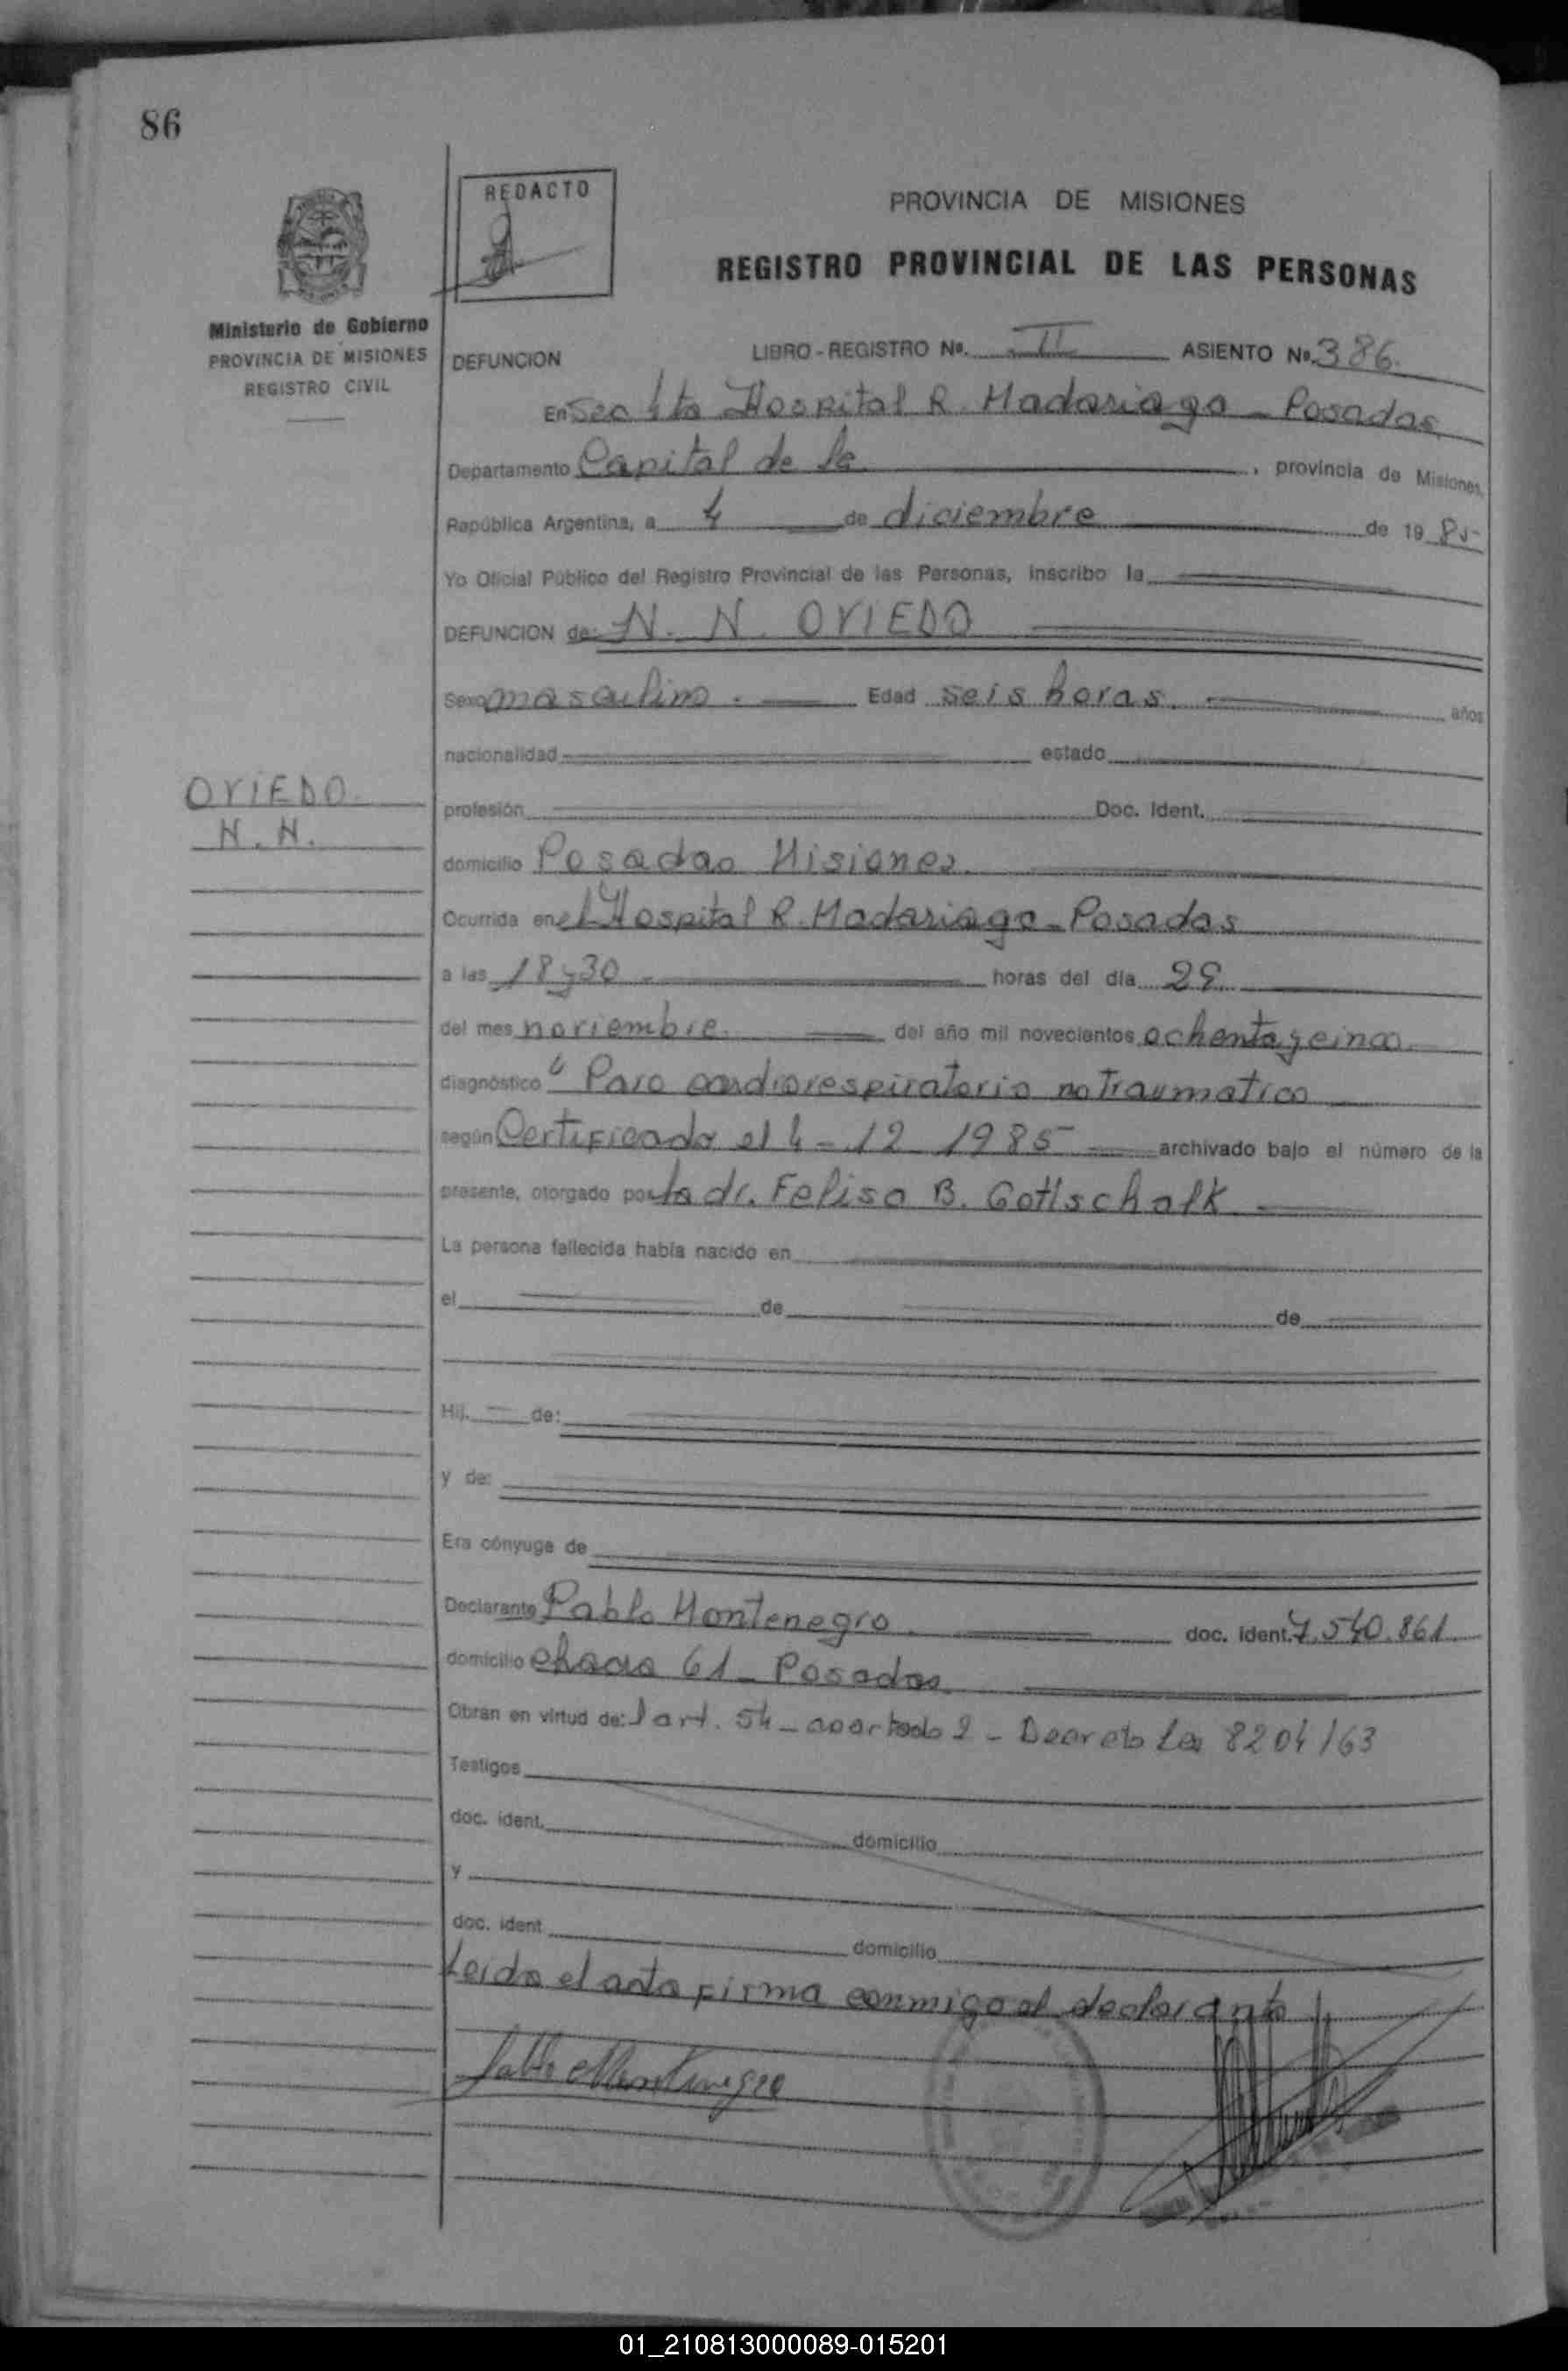 86
REDACTO
PROVINCIA DE MISIONES
REGISTRO PROVINCIAL DE LAS PERSONAS
Ministerio de Gobierno
PROVINCIA DE MISIONES
REGISTRO CIVIL
DEFUNCION
LIBRO - REGISTRO Nº. II ASIENTO Nº. 386.
En Sec 4ta Hospital R. Madariaga - Posadas
Departamento Capital de la , provincia de Misiones,
República Argentina, a 4 de diciembre de 19 85
Yo Oficial Público del Registro Provincial de las Personas, inscribo la
DEFUNCION de: N. N. OVIEDO
Sexo masculino. Edad seis horas. años
nacionalidad estado
OVIEDO.
N. N.
profesión Doc. Ident.
domicilio Posadas Misiones.
Ocurrida en el Hospital R. Madariaga - Posadas
a las 18 y 30 horas del día 29
del mes noviembre. del año mil novecientos ochenta y cinco.
diagnóstico " Paro cardiorespiratorio no Traumatico
según Certificado el 4 - 12 1985 archivado bajo el número de la
presente, otorgado por la dr. Felisa B. Gottschalk
La persona fallecida había nacido en
el de de
Hij. de:
y de:
Era cónyuge de
Declarante Pablo Montenegro. doc. ident. 7.540.861
domicilio chacra 61 - Posadas.
Obran en virtud de: l art. 54 - apartado 2 - Decreto Ley 8204/63
Testigos
doc. ident. domicilio
y
doc. ident domicilio
Leida el acta firma conmigo el declarante
Pablo Montenegro
01_210813000089-015201